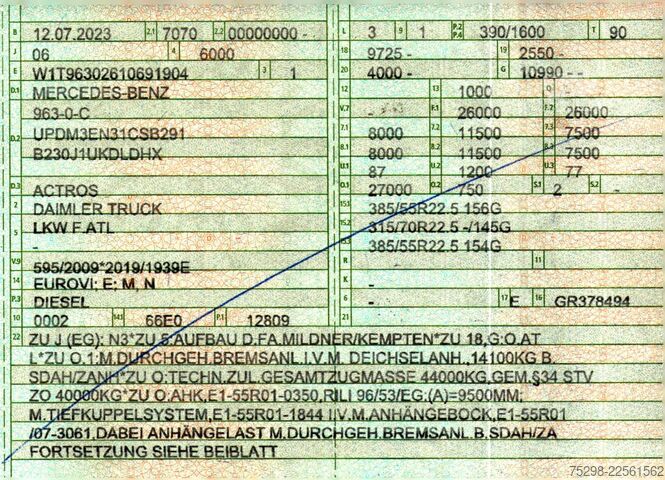 B 12.07.2023 2.1 7070 2.2 00000000 - L 3 9 1 P.2 P.4 390/1600 T 90
J 06 4 6000 18 9725 - 19 2550 -
E W1T96302610691904 3 1 20 4000 - G 10990 - -
D.1 MERCEDES-BENZ 12 - 13 1000 Q -
963-0-C V.7 - F.1 26000 F.2 26000
D.2 UPDM3EN31CSB291 7.1 8000 7.2 11500 7.3 7500
B230J1UKDLDHX 8.1 8000 8.2 11500 8.3 7500
U.1 87 U.2 1200 U.3 77
D.3 ACTROS O.1 27000 O.2 750 S.1 2 S.2 -
2 DAIMLER TRUCK 15.1 385/55R22.5 156G
5 LKW F.ATL 15.2 315/70R22.5 -/145G
- 15.3 385/55R22.5 154G
V.9 595/2009*2019/1939E R - 11 -
14 EUROVI; E; M, N K -
P.3 DIESEL 6 - 17 E 16 GR378494
10 0002 14.1 66E0 P.1 12809 21 -
22 ZU J (EG): N3*ZU 5:AUFBAU D.FA.MILDNER/KEMPTEN*ZU 18,G:O.AT
L*ZU O.1:M.DURCHGEH.BREMSANL.I.V.M. DEICHSELANH.,14100KG B.
SDAH/ZANH*ZU O:TECHN.ZUL.GESAMTZUGMASSE 44000KG,GEM.§34 STV
ZO 40000KG*ZU O:AHK,E1-55R01-0350,RILI 96/53/EG:(A)=9500MM;
M.TIEFKUPPELSYSTEM,E1-55R01-1844 I.V.M.ANHÄNGEBOCK,E1-55R01
/07-3061,DABEI ANHÄNGELAST M.DURCHGEH.BREMSANL.B.SDAH/ZA
FORTSETZUNG SIEHE BEIBLATT
75298-22561562